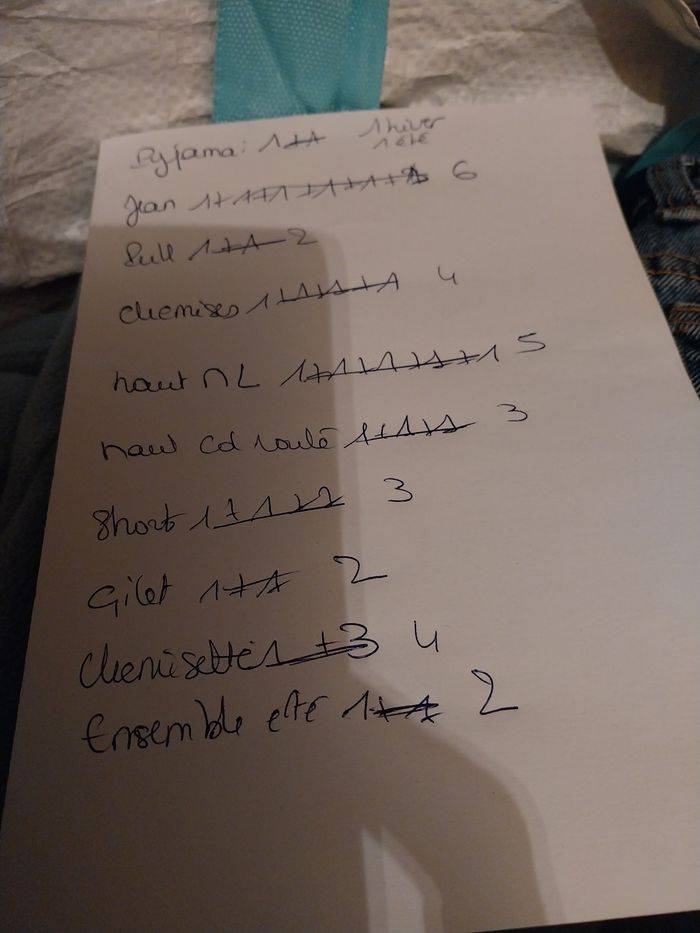 Pyjama: 1+1 1 hiver
1 été
Jean 1+1+1+1+1+1 6
Pull 1+1 2
chemises 1+1+1+1 4
haut ML 1+1+1+1+1 5
haut cd roulé 1+1+1 3
Short 1+1+1 3
Gilet 1+1 2
Chemisette 1+3 4
Ensemble eté 1+1 2